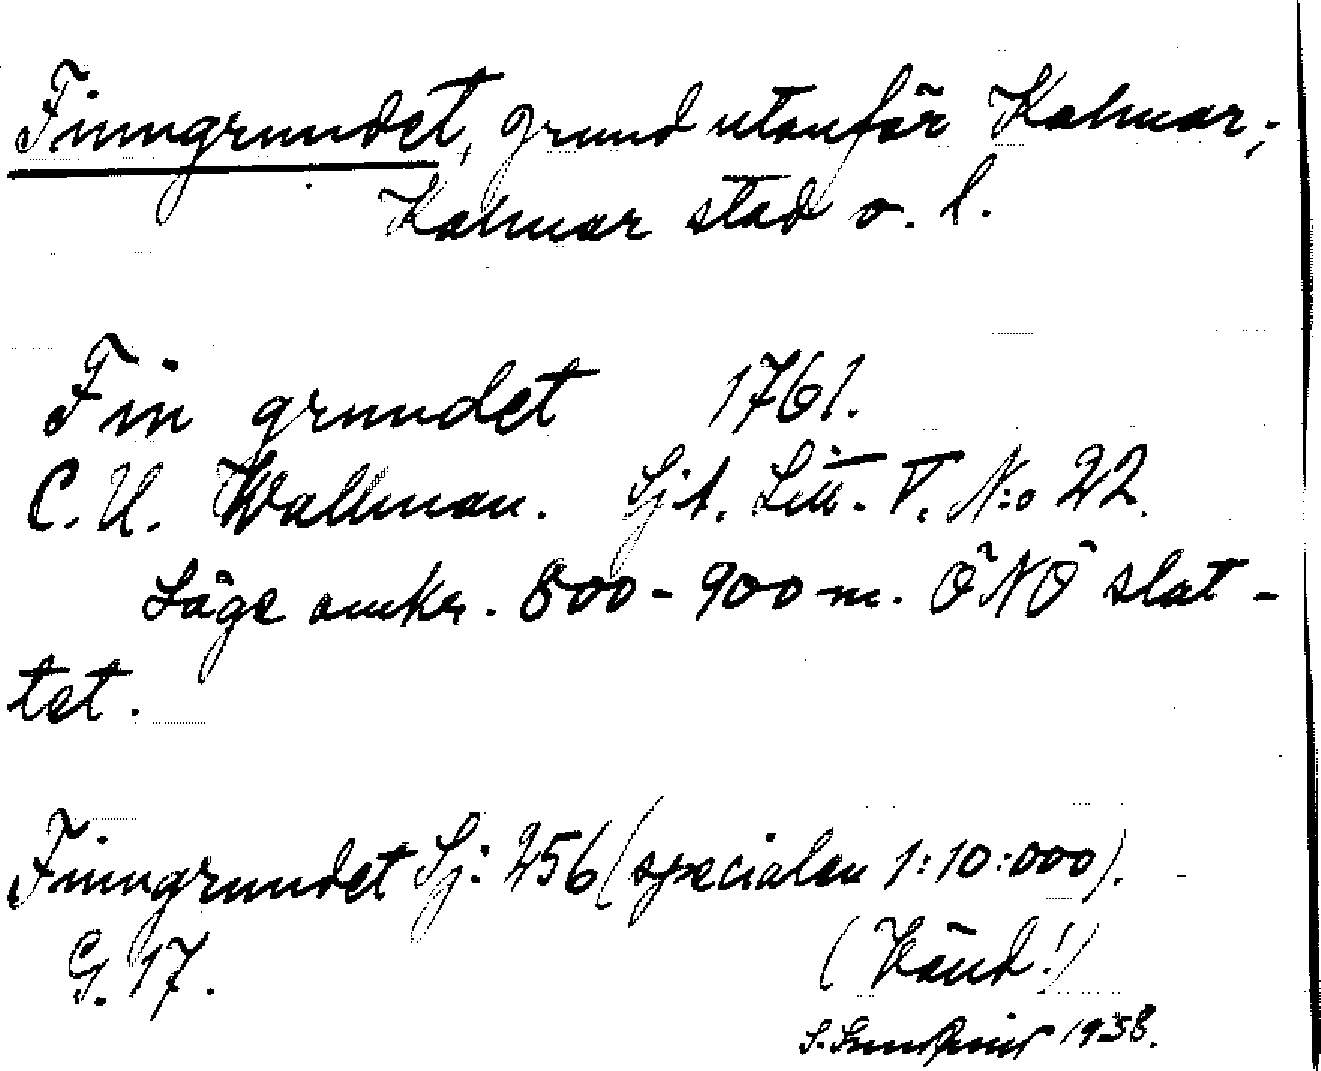 Finngrundet, grund utanför Kalmar,
Kalmar stad o. l.
Fin grundet 1761.
C. U. Wallman. Sjk. Litt. V. N:o 22.
Läge omkr. 800-900 m. ÖNÖ slot-
tet.
Finngrundet Sj: 256 (specialen 1:10:000).
G. 17.
(Vänd!)
S. 1938.